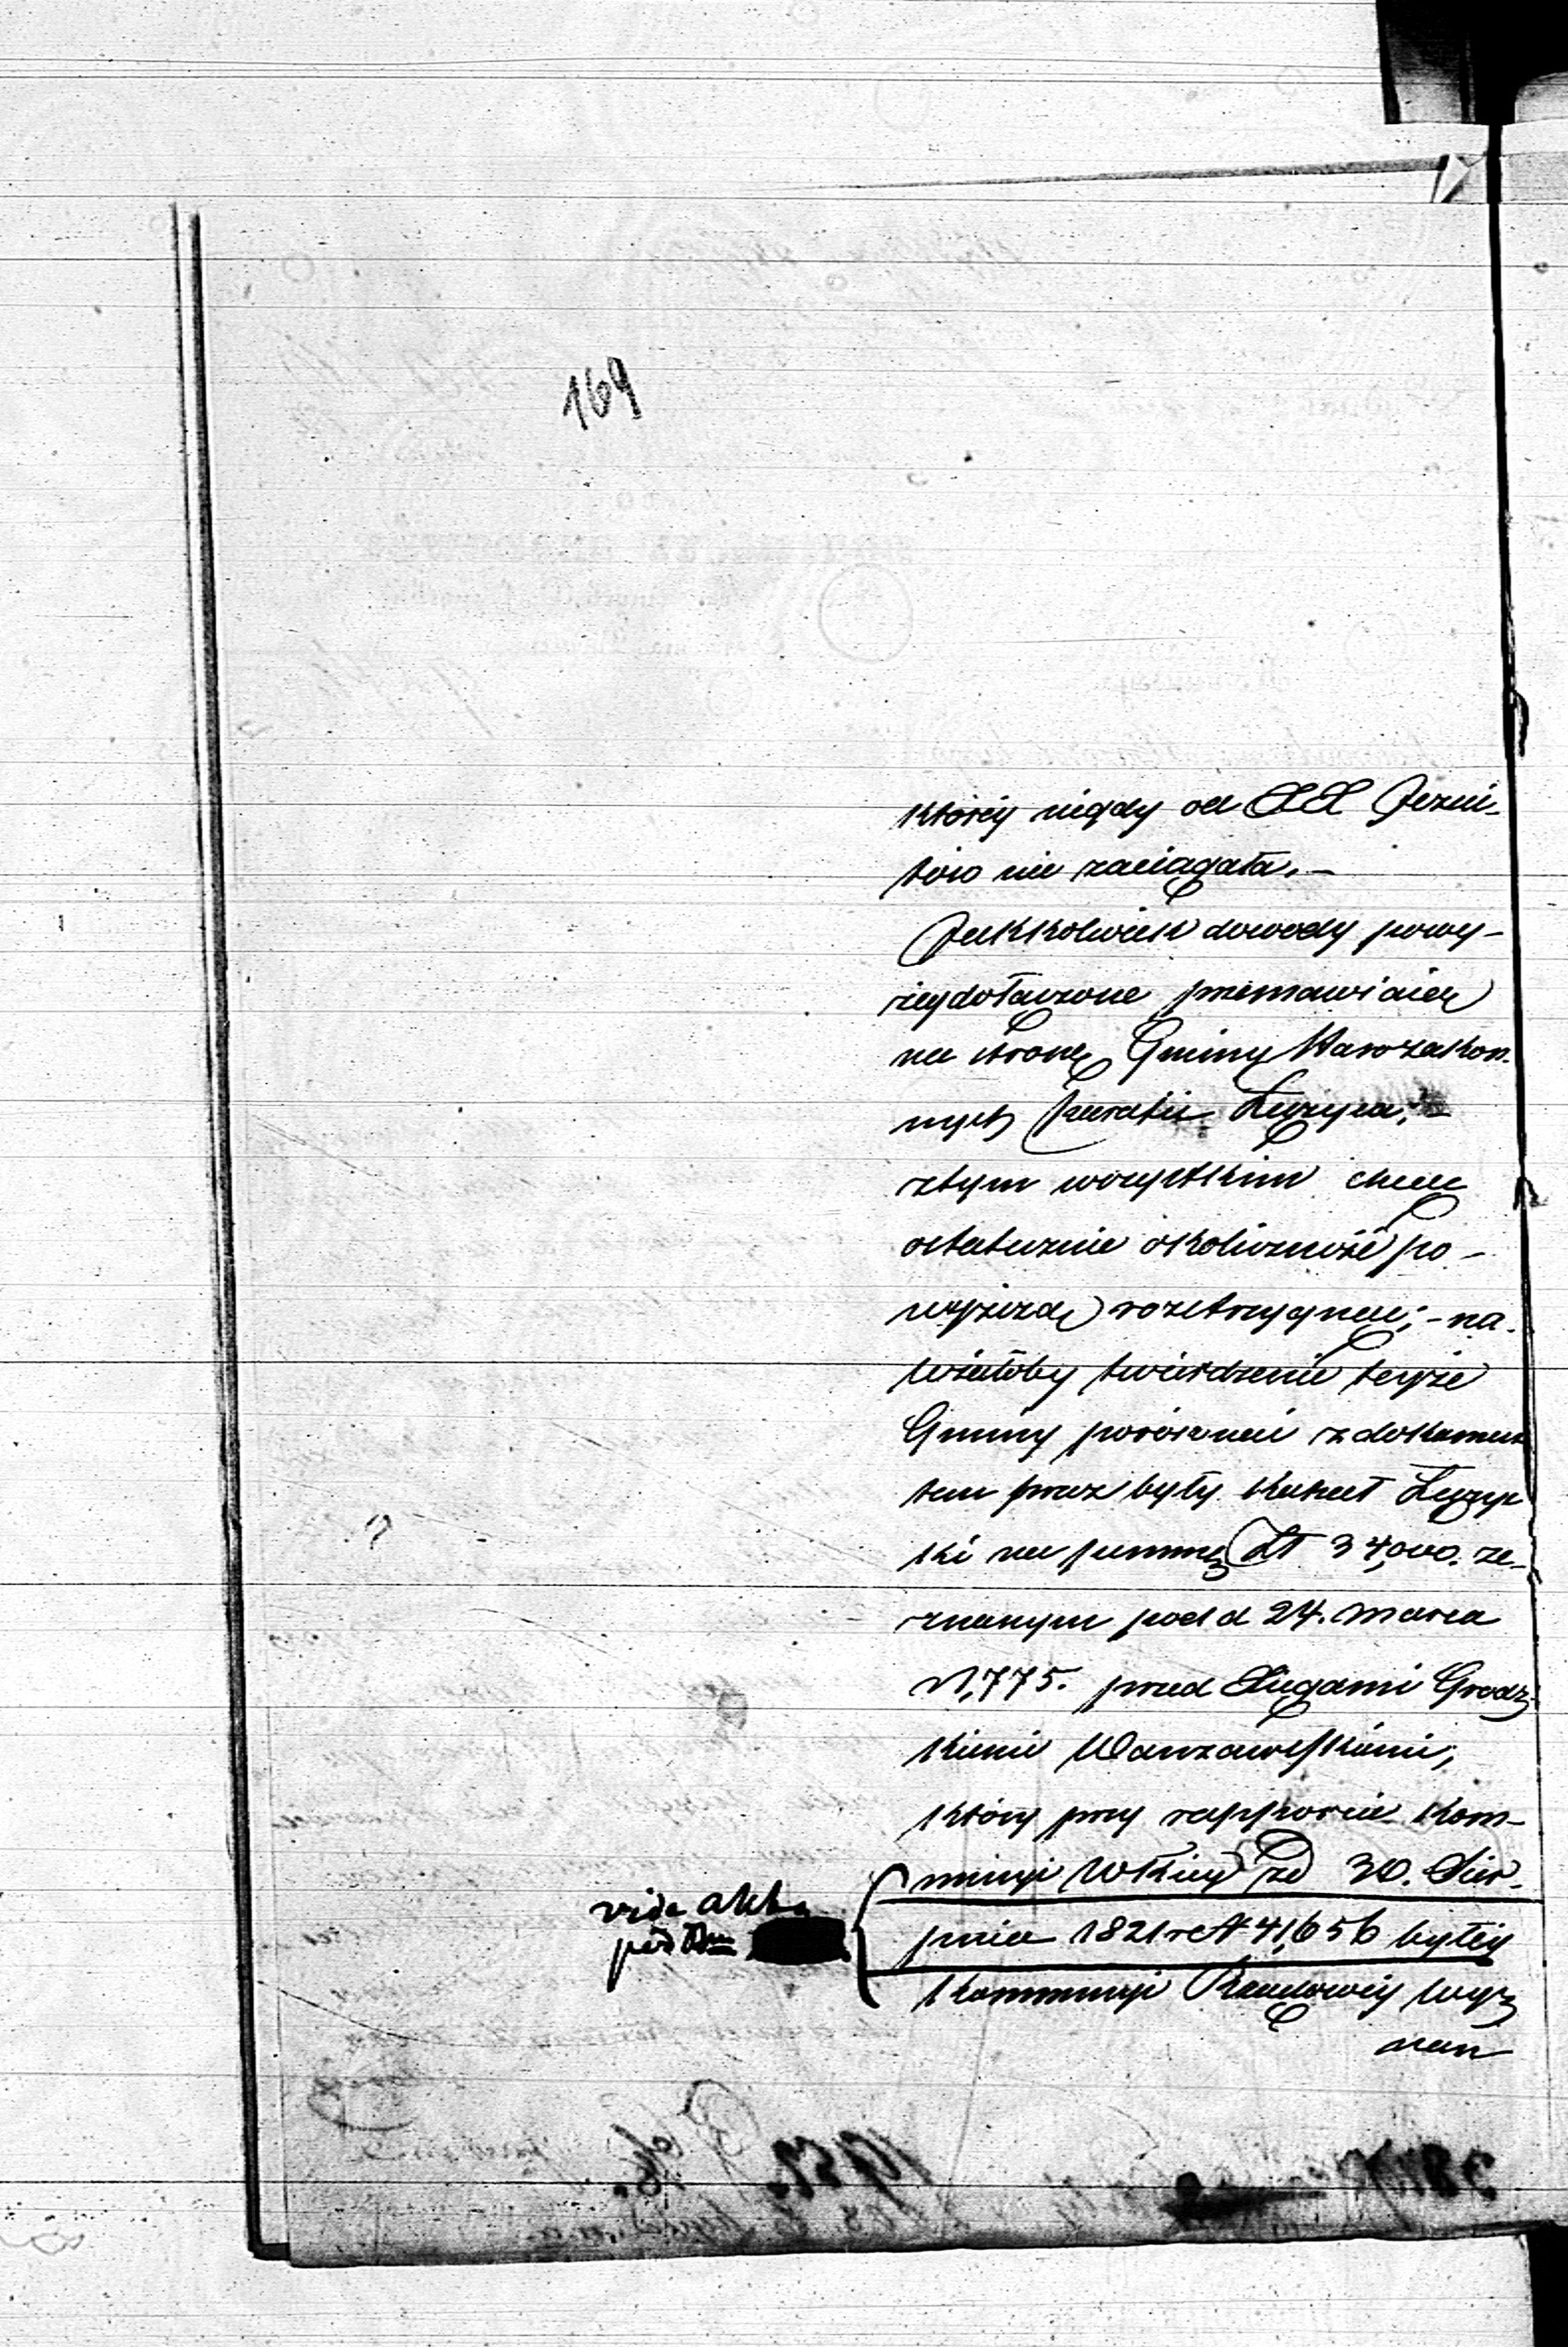 169
któréy nigdy od XX Jezui-
tów nie zaciągała. —
Jakkolwiek dowody powy-
żéy dołączone przemawiaią
na stronę Gminy Starozakon-
nych Powiatu Łęczyca; —
z tym wszystkim chcąc
ostatecznie okoliczność po-
wyższą rozstrzygnąć; - na-
leżałoby twierdzenie teyże
Gminy porównać z dokumen
tem przez były Kahał Łęczyc
ki na summę Zł 34,000. ze-
znanym pod d 24. Marca
1,775. przed Xięgami Grodz-
kiemi Warszawskiemi,
który przy rapporcie Kom-
missyi Wtkiéy zd 30. Sier-
pnia 1821 r N 41,656 byłéy
Kommissyi Rządowéy Wyz
nan
vide akta
pod